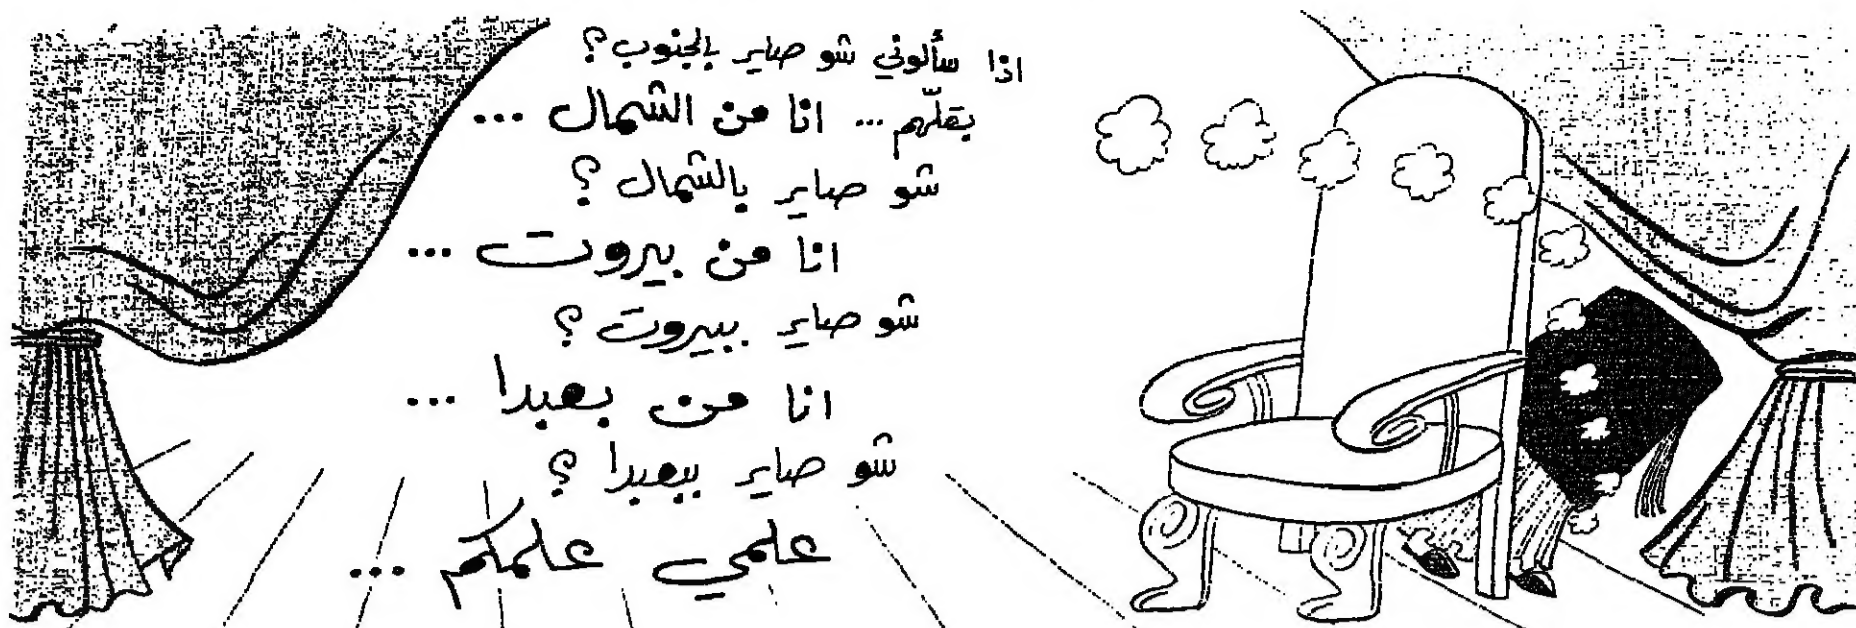 اذا سألوني شو صاير بالجنوب؟
بقلّهم ... انا من الشمال ...
شو صاير بالشمال؟
انا من بيروت ...
شو صاير ببيروت؟
انا من بعبدا ...
شو صاير ببعبدا؟
علمي علمكم ...